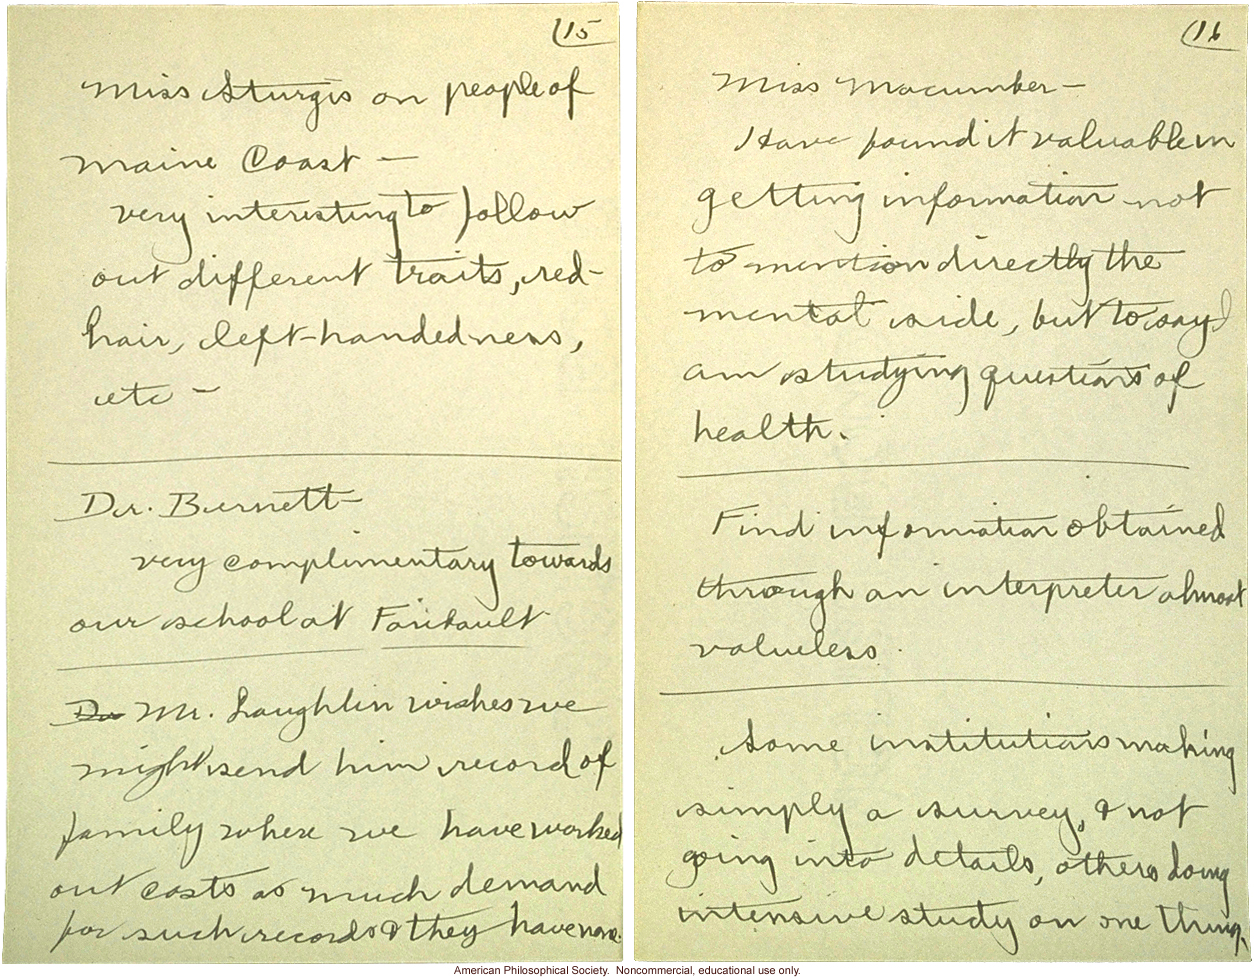 (15
Miss Sturgis on people of
Maine Coast —
very interesting to follow
out different traits, red-
hair, left-handedness,
etc —
Dr. Burnett —
very complimentary towards
our school at Faribault
Dr Mr. Laughlin wishes we
might send him record of
family where we have worked
out costs as much demand
for such records & they have none.
(16
Miss Macumber —
Have found it valuable in
getting information not
to mention directly the
mental side, but to say I
am studying questions of
health.
Find information obtained
through an interpreter almost
valueless.
Some institutions making
simply a survey, & not
going into details, others doing
intensive study on one thing.
American Philosophical Society. Noncommercial, educational use only.